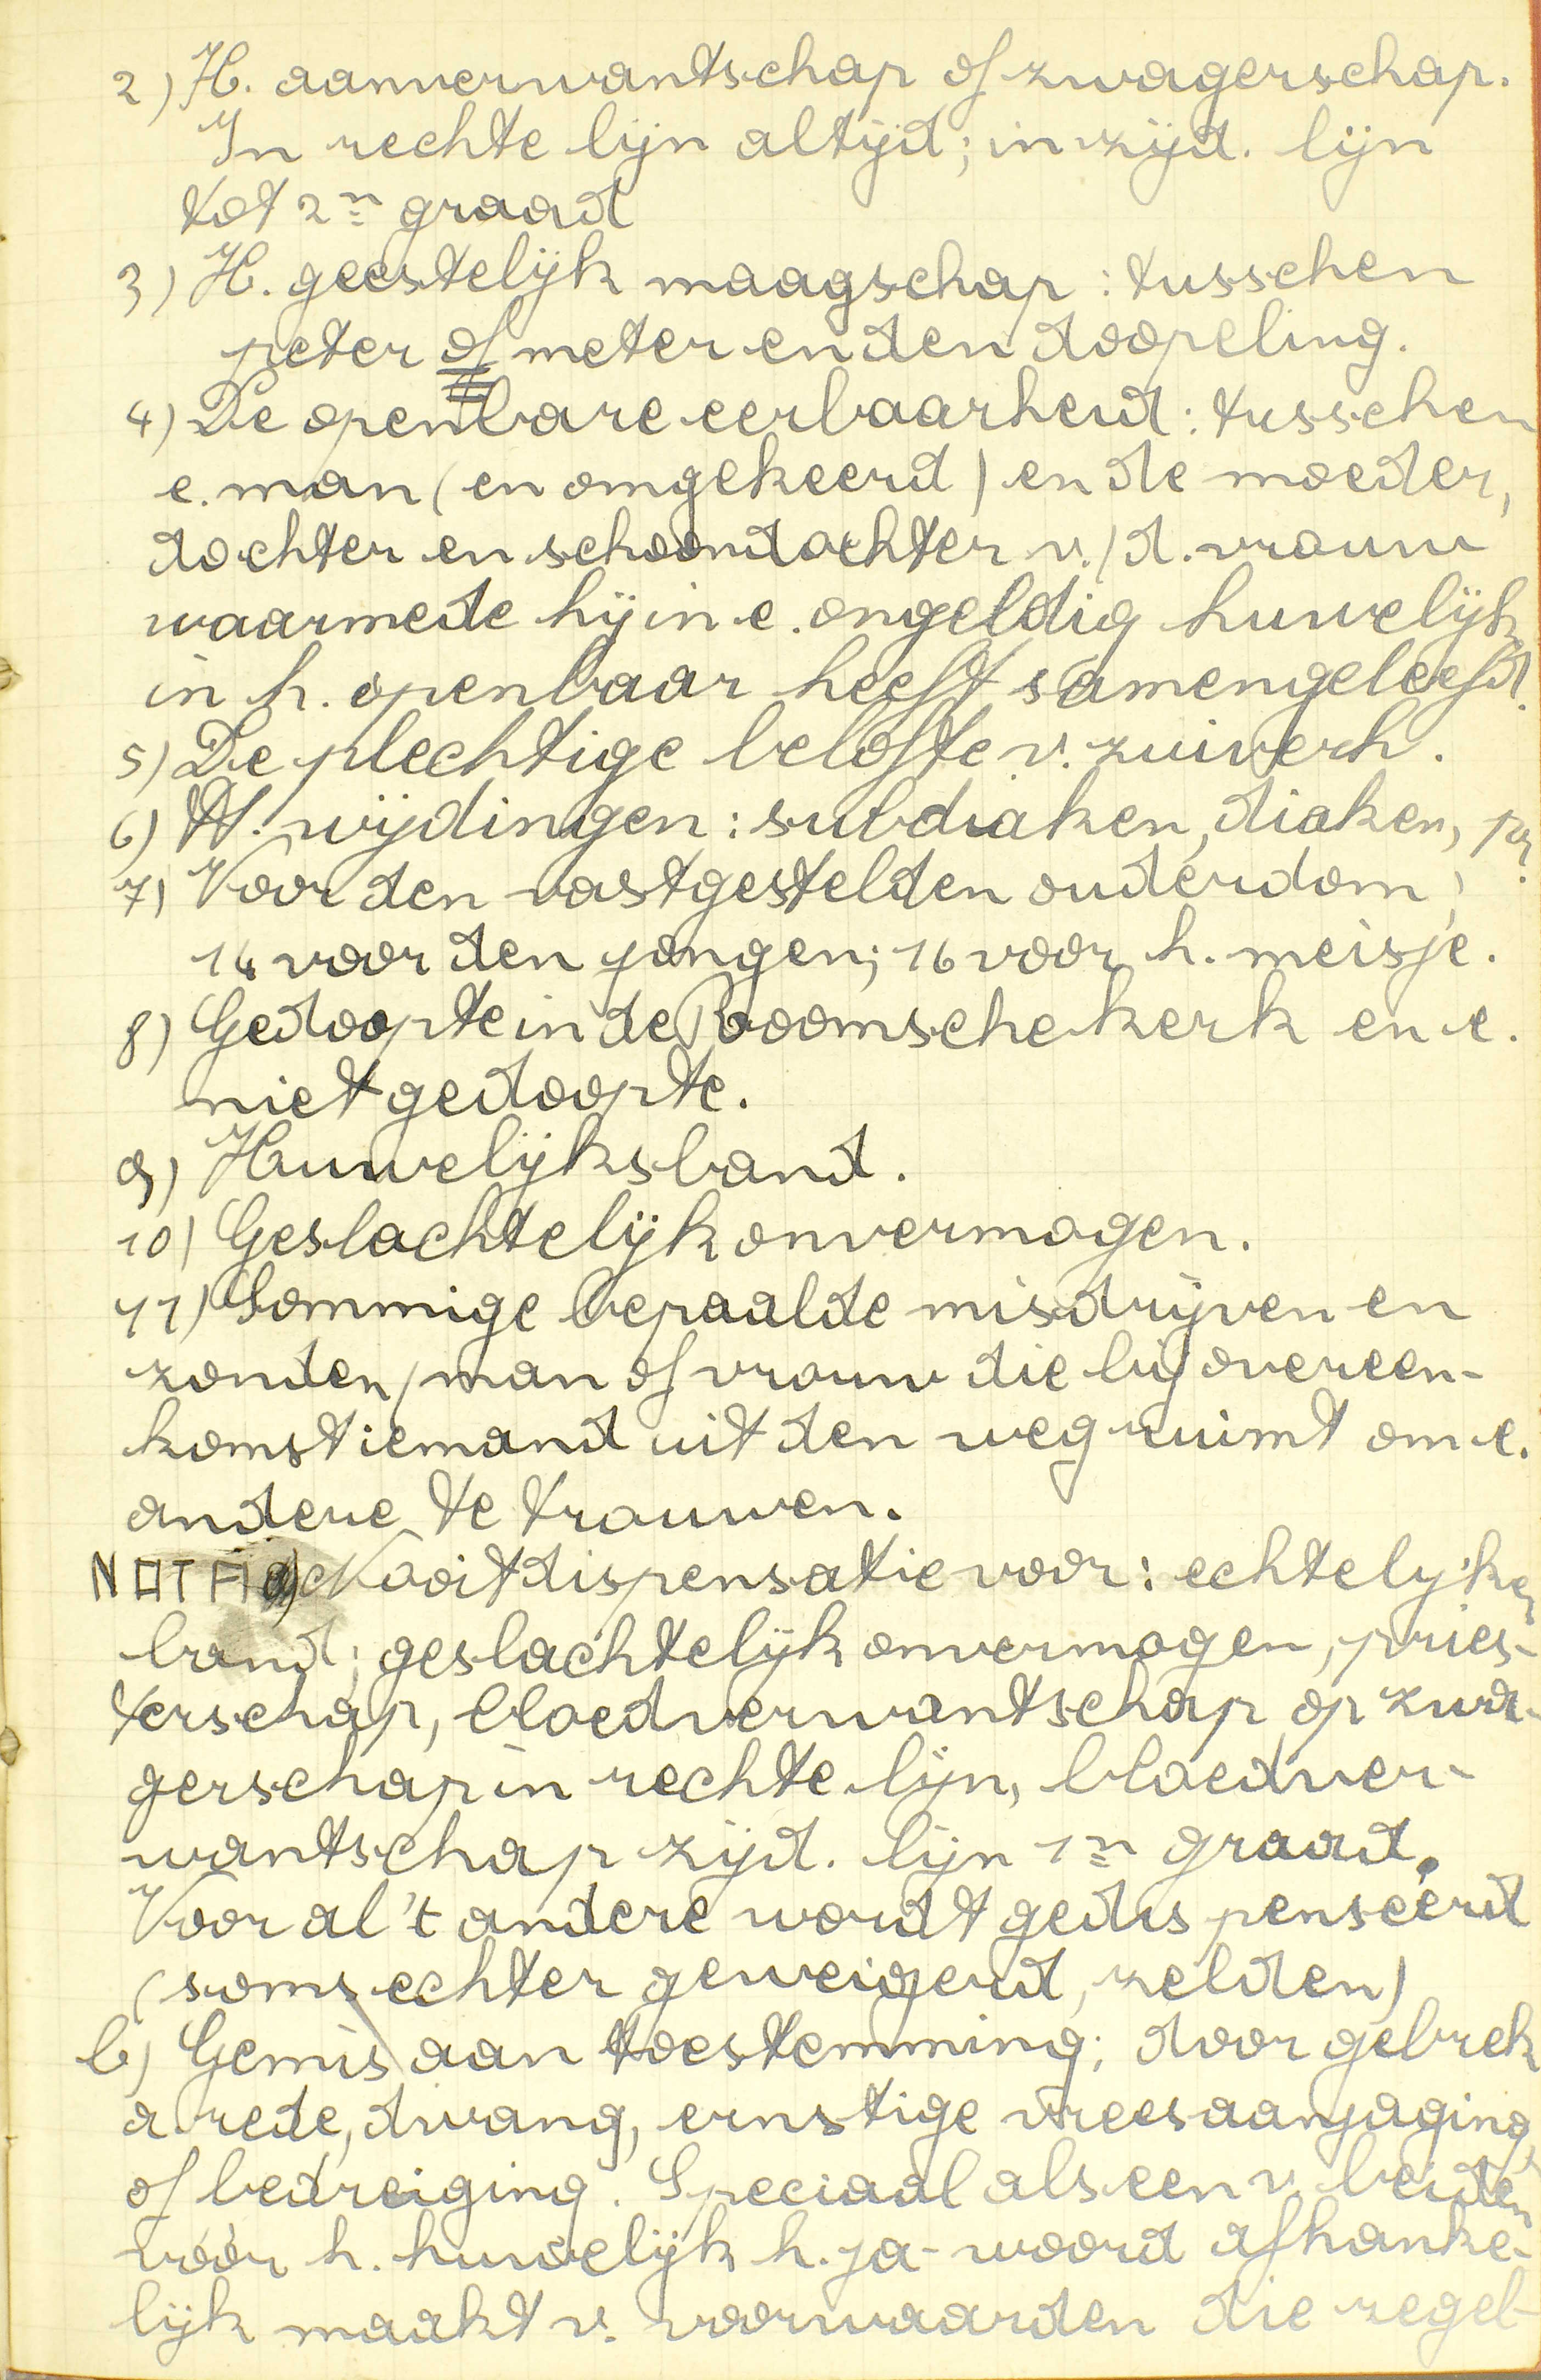 2) H. aanverwantschap of zwagerschap.
In rechte lijn altijd; in zijd. lijn
tot 2n graad
3) H. geestelijk maagschap: tusschen
peter of meter en den doopeling.
4) De openbare eerbaarheid: tusschen
e. man (en omgekeerd) en de moeder,
dochter en schoondochter v./d. vrouw
waarmede hij in e. ongeldig huwelijk
in h. openbaar heeft samengeleefd.
5) De plechtige belofte v. zuiverh.
6) H. wijdingen: subdiaken, diaken, pr.
7) Voor den vastgestelden ouderdom;
14 voor den jongen; 16 voor h. meisje.
8) Gedoopte in de Roomsche kerk en e.
niet gedoopte.
9) Huwelijksband.
10) Geslachtelijk onvermogen.
11) Sommige bepaalde misdrijven en
zonden / man of vrouw die bij overeen-
komst iemand uit den weg ruimt om e.
andere te trouwen.
NOTA a) Nooit dispensatie voor: echtelijken
band; geslachtelijk onvermogen, pries-
terschap, bloedverwantschap op zwa-
gerschap in rechte lijn, bloedver-
wantschap zijd. lijn 1n graad.
Voor al 't andere wordt gedispenseerd
(soms echter geweigerd, zelden)
b) Gemis aan toestemming; door gebrek
a. rede, dwang, ernstige vreesaanjaging,
of bedreiging. Speciaal als een v. beiden
vóór h. huwelijk h. ja-woord afhanke-
lijk maakt v. voorwaarden die regel-